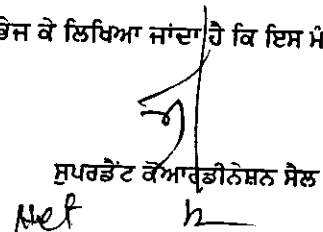 ਭੇਜ ਕੇ ਲਿਖਿਆ ਜਾਂਦਾ ਹੈ ਕਿ ਇਸ
ਸੁਪਰਡੈਂਟ ਕੋਆਰਡੀਨੇਸ਼ਨ ਸੈਲ